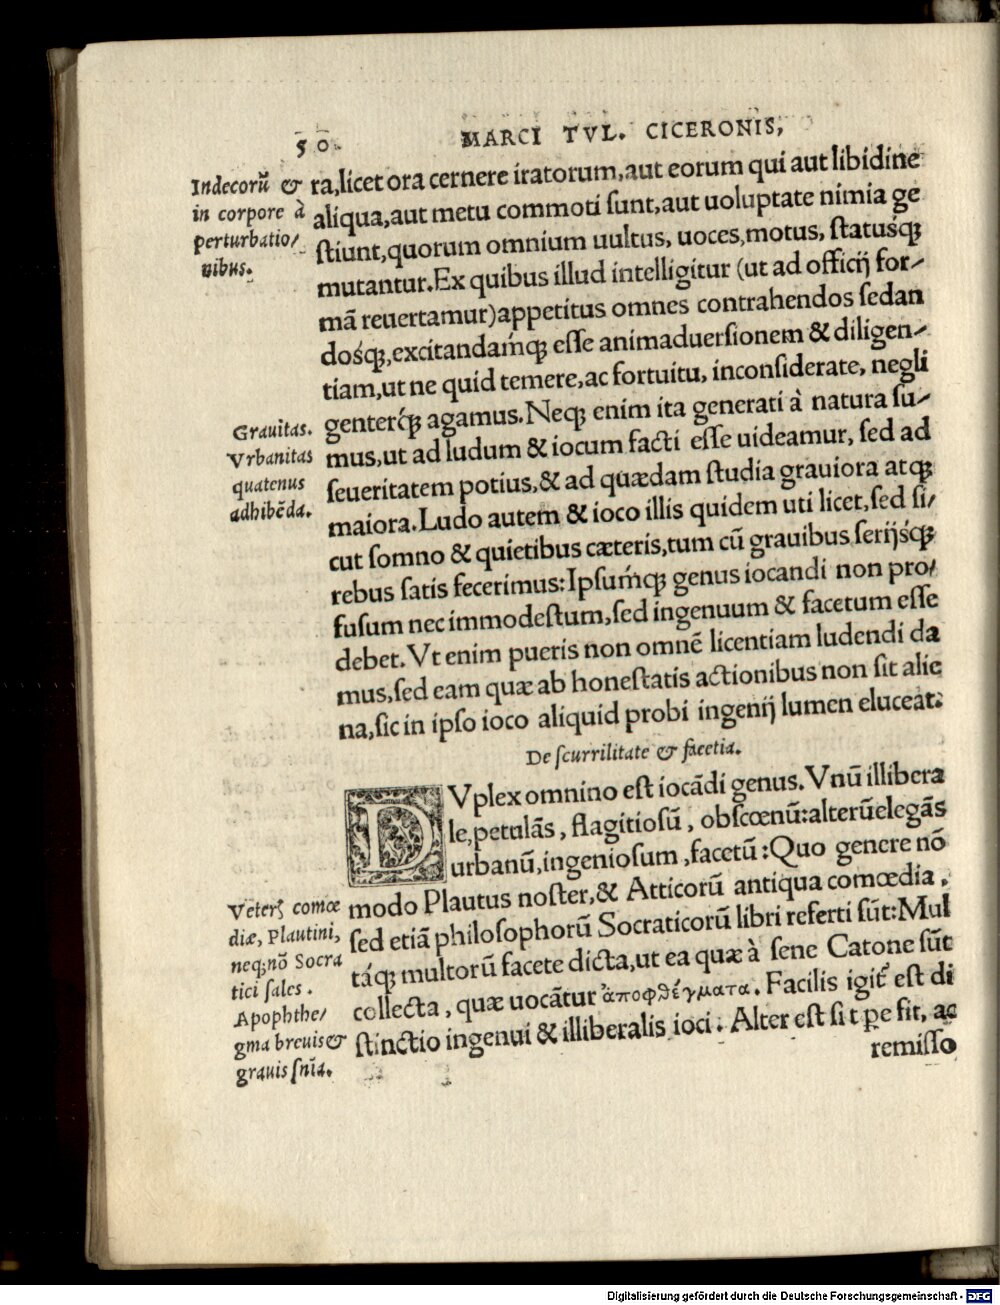 50. MARCI TVL. CICERONIS,
Indecorũ &
in corpore à
perturbatio/
nibus.
ra,licet ora cernere iratorum,aut eorum qui aut libidine
aliqua,aut metu commoti ſunt,aut uoluptate nimia ge
ſtiunt,quorum omnium uultus, uoces,motus, ſtatusq́ꝫ
mutantur.Ex quibus illud intelligitur (ut ad officij for/
mã reuertamur)appetitus omnes contrahendos ſedan
dosq́ꝫ,excitandamq́ꝫ eſſe animaduerſionem & diligen/
tiam,ut ne quid temere,ac fortuitu, inconſiderate, negli
genterq́ꝫ agamus.Neqꝫ enim ita generati à natura ſu/
mus,ut ad ludum & iocum facti eſſe uideamur, ſed ad
ſeueritatem potius,& ad quædam ſtudia grauiora atqꝫ
maiora.Ludo autem & ioco illis quidem uti licet,ſed ſi/
cut ſomno & quietibus cæteris,tum cũ grauibus ſerijsq́ꝫ
rebus ſatis fecerimus:Ipſumq́ꝫ genus iocandi non pro/
fuſum nec immodeſtum,ſed ingenuum & facetum eſſe
debet.Vt enim pueris non omnẽ licentiam ludendi da
mus,ſed eam quæ ab honeſtatis actionibus non ſit alie
na,ſic in ipſo ioco aliquid probi ingenij lumen eluceat.
Grauitas.
Vrbanitas
quatenus
adhibẽda.
De ſcurrilitate & facetia.
DVplex omnino eſt iocãdi genus.Vnũ illibera
le,petulãs, flagitioſũ, obſcœnũ:alterũ elegãs
urbanũ,ingenioſum,facetũ:Quo genere nõ
modo Plautus noſter,& Atticorũ antiqua comœdia,
ſed etiã philoſophorũ Socraticorũ libri referti ſũt:Mul
táqꝫ multorũ facete dicta,ut ea quæ à ſene Catone ſũt
collecta, quæ uocãtur ἀποφθέγματα. Facilis igit᷑ eſt di
ſtinctio ingenui & illiberalis ioci. Alter eſt ſi tꝑe fit, ac
remiſſo
Veterꝭ comœ
diæ, Plautini,
neqꝫ nõ Socra
tici ſales.
Apophthe/
gma breuis &
grauis ſnĩa.
Digitalisierung gefördert durch die Deutsche Forschungsgemeinschaft - DFG